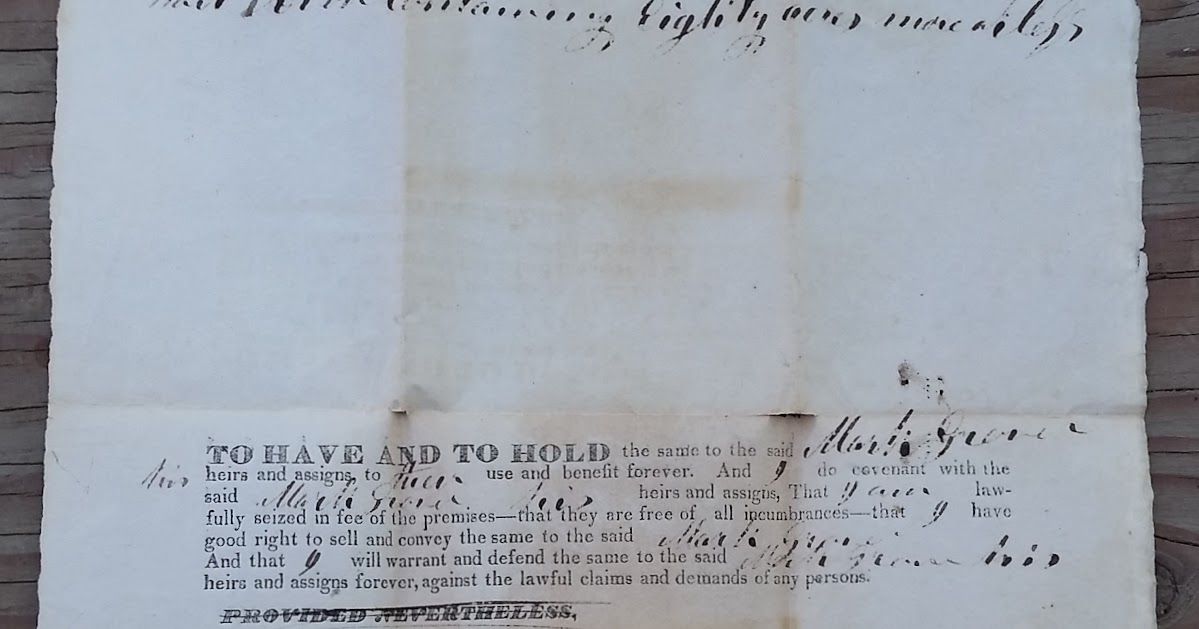 containing Eighty acres more or less
TO HAVE AND TO HOLD the same to the said Mark Grover
his heirs and assigns, to their use and benefit forever. And I do covenant with the
said Mark Grover his heirs and assigns, That I am law-
fully seized in fee of the premises—that they are free of all incumbrances—that I have
good right to sell and convey the same to the said Mark Grover
And that I will warrant and defend the same to the said Mark Grover his
heirs and assigns forever, against the lawful claims and demands of any persons.
PROVIDED NEVERTHELESS,